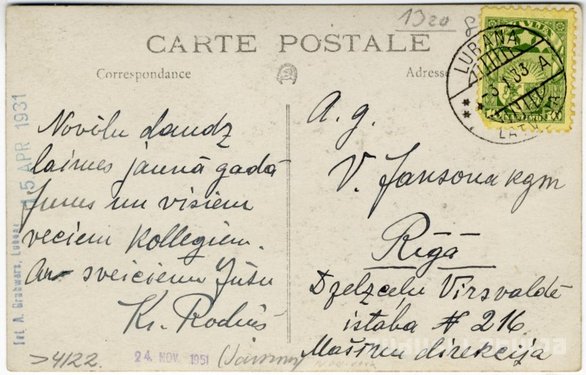 1320
CARTE POSTALE
Correspondance
Adresse
LUBANA
33 A
LATVIJA
Novēlu daudz
laimes jaunā gadā
Jums un visiem
veciem kollēģiem.
Ar sveicieniem Jūsu
Kr. Rodiņš
A. g.
V. Jansona kgm
Rīgā
Dzelzceļu Virsvaldē
istaba # 216
Mašīnu direkcija
15 APR 1931
Fot. A. Grabwars, Lubana
>4122.
24. NOV. 1951